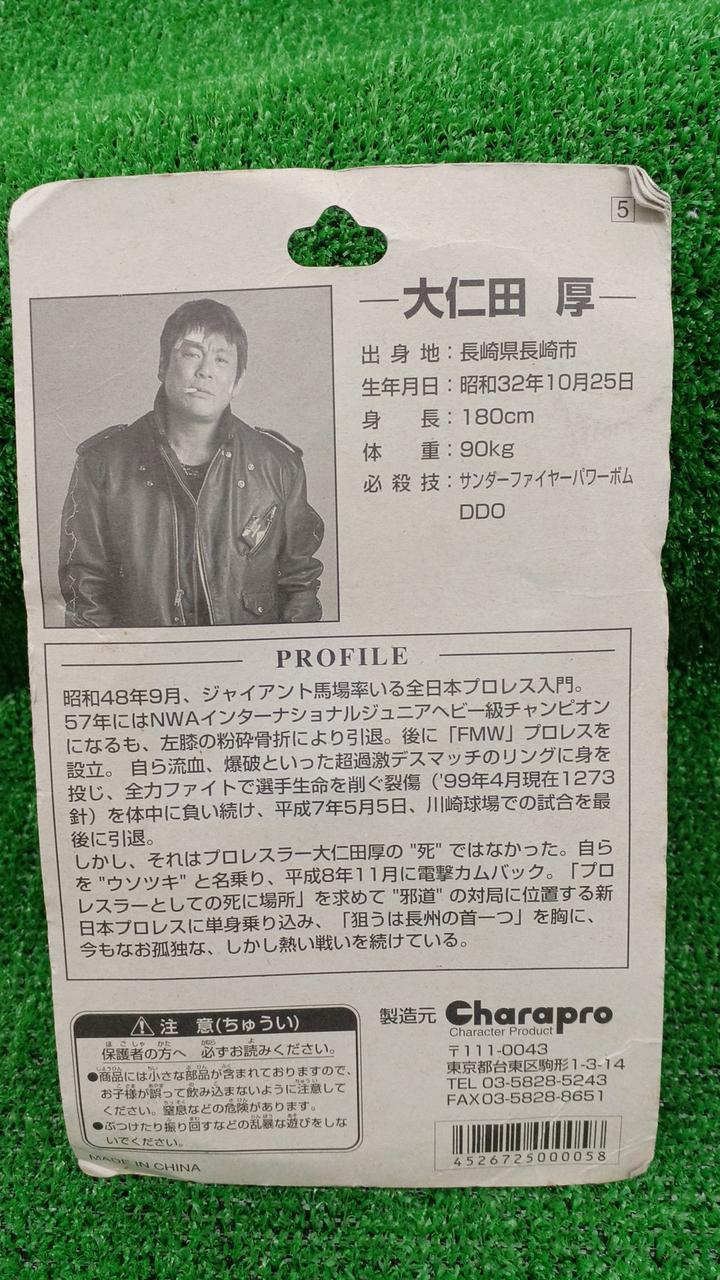 5
大仁田 厚
出身地：長崎県長崎市
生年月日：昭和32年10月25日
身長：180cm
体重：90kg
必殺技：サンダーファイヤーパワーボム
DDO
PROFILE
昭和48年9月、ジャイアント馬場率いる全日本プロレス入門。
57年にはNWAインターナショナルジュニアヘビー級チャンピオン
になるも、左膝の粉砕骨折により引退。後に「FMW」プロレスを
設立。 自ら流血、爆破といった超過激デスマッチのリングに身を
投じ、全力ファイトで選手生命を削ぐ裂傷（'99年4月現在1273
針）を体中に負い続け、平成7年5月5日、川崎球場での試合を最
後に引退。
しかし、それはプロレスラー大仁田厚の "死" ではなかった。自ら
を "ウソツキ" と名乗り、平成8年11月に電撃カムバック。「プロ
レスラーとしての死に場所」を求めて "邪道" の対局に位置する新
日本プロレスに単身乗り込み、「狙うは長州の首一つ」を胸に、
今もなお孤独な、しかし熱い戦いを続けている。
注 意(ちゅうい)
保護者の方へ 必ずお読みください。
●商品には小さな部品が含まれておりますので、
お子様が誤って飲み込まないように注意して
ください。窒息などの危険があります。
●ぶつけたり振り回すなどの乱暴な遊びをしな
いでください。
MADE IN CHINA
製造元 Charapro
Character Product
〒111-0043
東京都台東区駒形1-3-14
TEL 03-5828-5243
FAX03-5828-8651
4526725000058